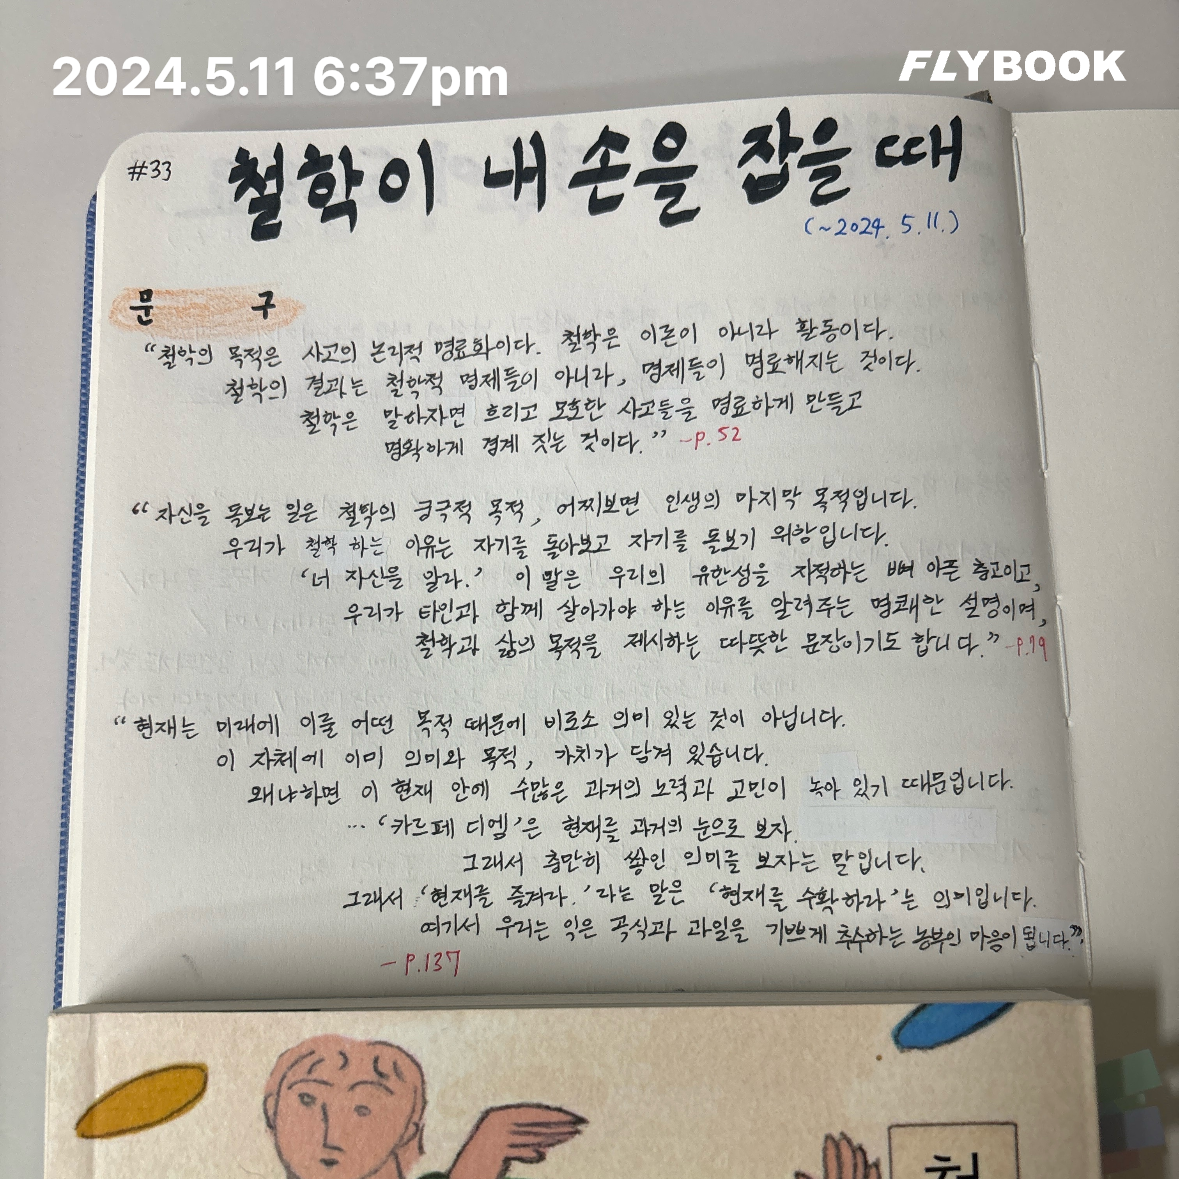 2024.5.11 6:37pm
FLYBOOK
#33
철학이 내 손을 잡을 때
(~2024. 5. 11.)
문 구
“철학의 목적은 사고의 논리적 명료화이다. 철학은 이론이 아니라 활동이다.
철학의 결과는 철학적 명제들이 아니라, 명제들이 명료해지는 것이다.
철학은 말하자면 흐리고 모호한 사고들을 명료하게 만들고
명확하게 경계 짓는 것이다.” -p.52
“자신을 돌보는 일은 철학의 궁극적 목적, 어찌보면 인생의 마지막 목적입니다.
우리가 철학 하는 이유는 자기를 돌아보고 자기를 돌보기 위함입니다.
‘너 자신을 알라.’ 이 말은 우리의 유한성을 지적하는 뼈 아픈 충고이고,
우리가 타인과 함께 살아가야 하는 이유를 알려주는 명쾌한 설명이며,
철학과 삶의 목적을 제시하는 따뜻한 문장이기도 합니다.” -p.79
“현재는 미래에 이룰 어떤 목적 때문에 비로소 의미 있는 것이 아닙니다.
이 자체에 이미 의미와 목적, 가치가 담겨 있습니다.
왜냐하면 이 현재 안에 수많은 과거의 노력과 고민이 녹아 있기 때문입니다.
… ‘카르페 디엠’은 현재를 과거의 눈으로 보자.
그래서 충만히 쌓인 의미를 보자는 말입니다.
그래서 ‘현재를 즐겨라.’라는 말은 ‘현재를 수확하라’는 의미입니다.
여기서 우리는 익은 곡식과 과일을 기쁘게 추수하는 농부의 마음이 됩니다.”
- P.137